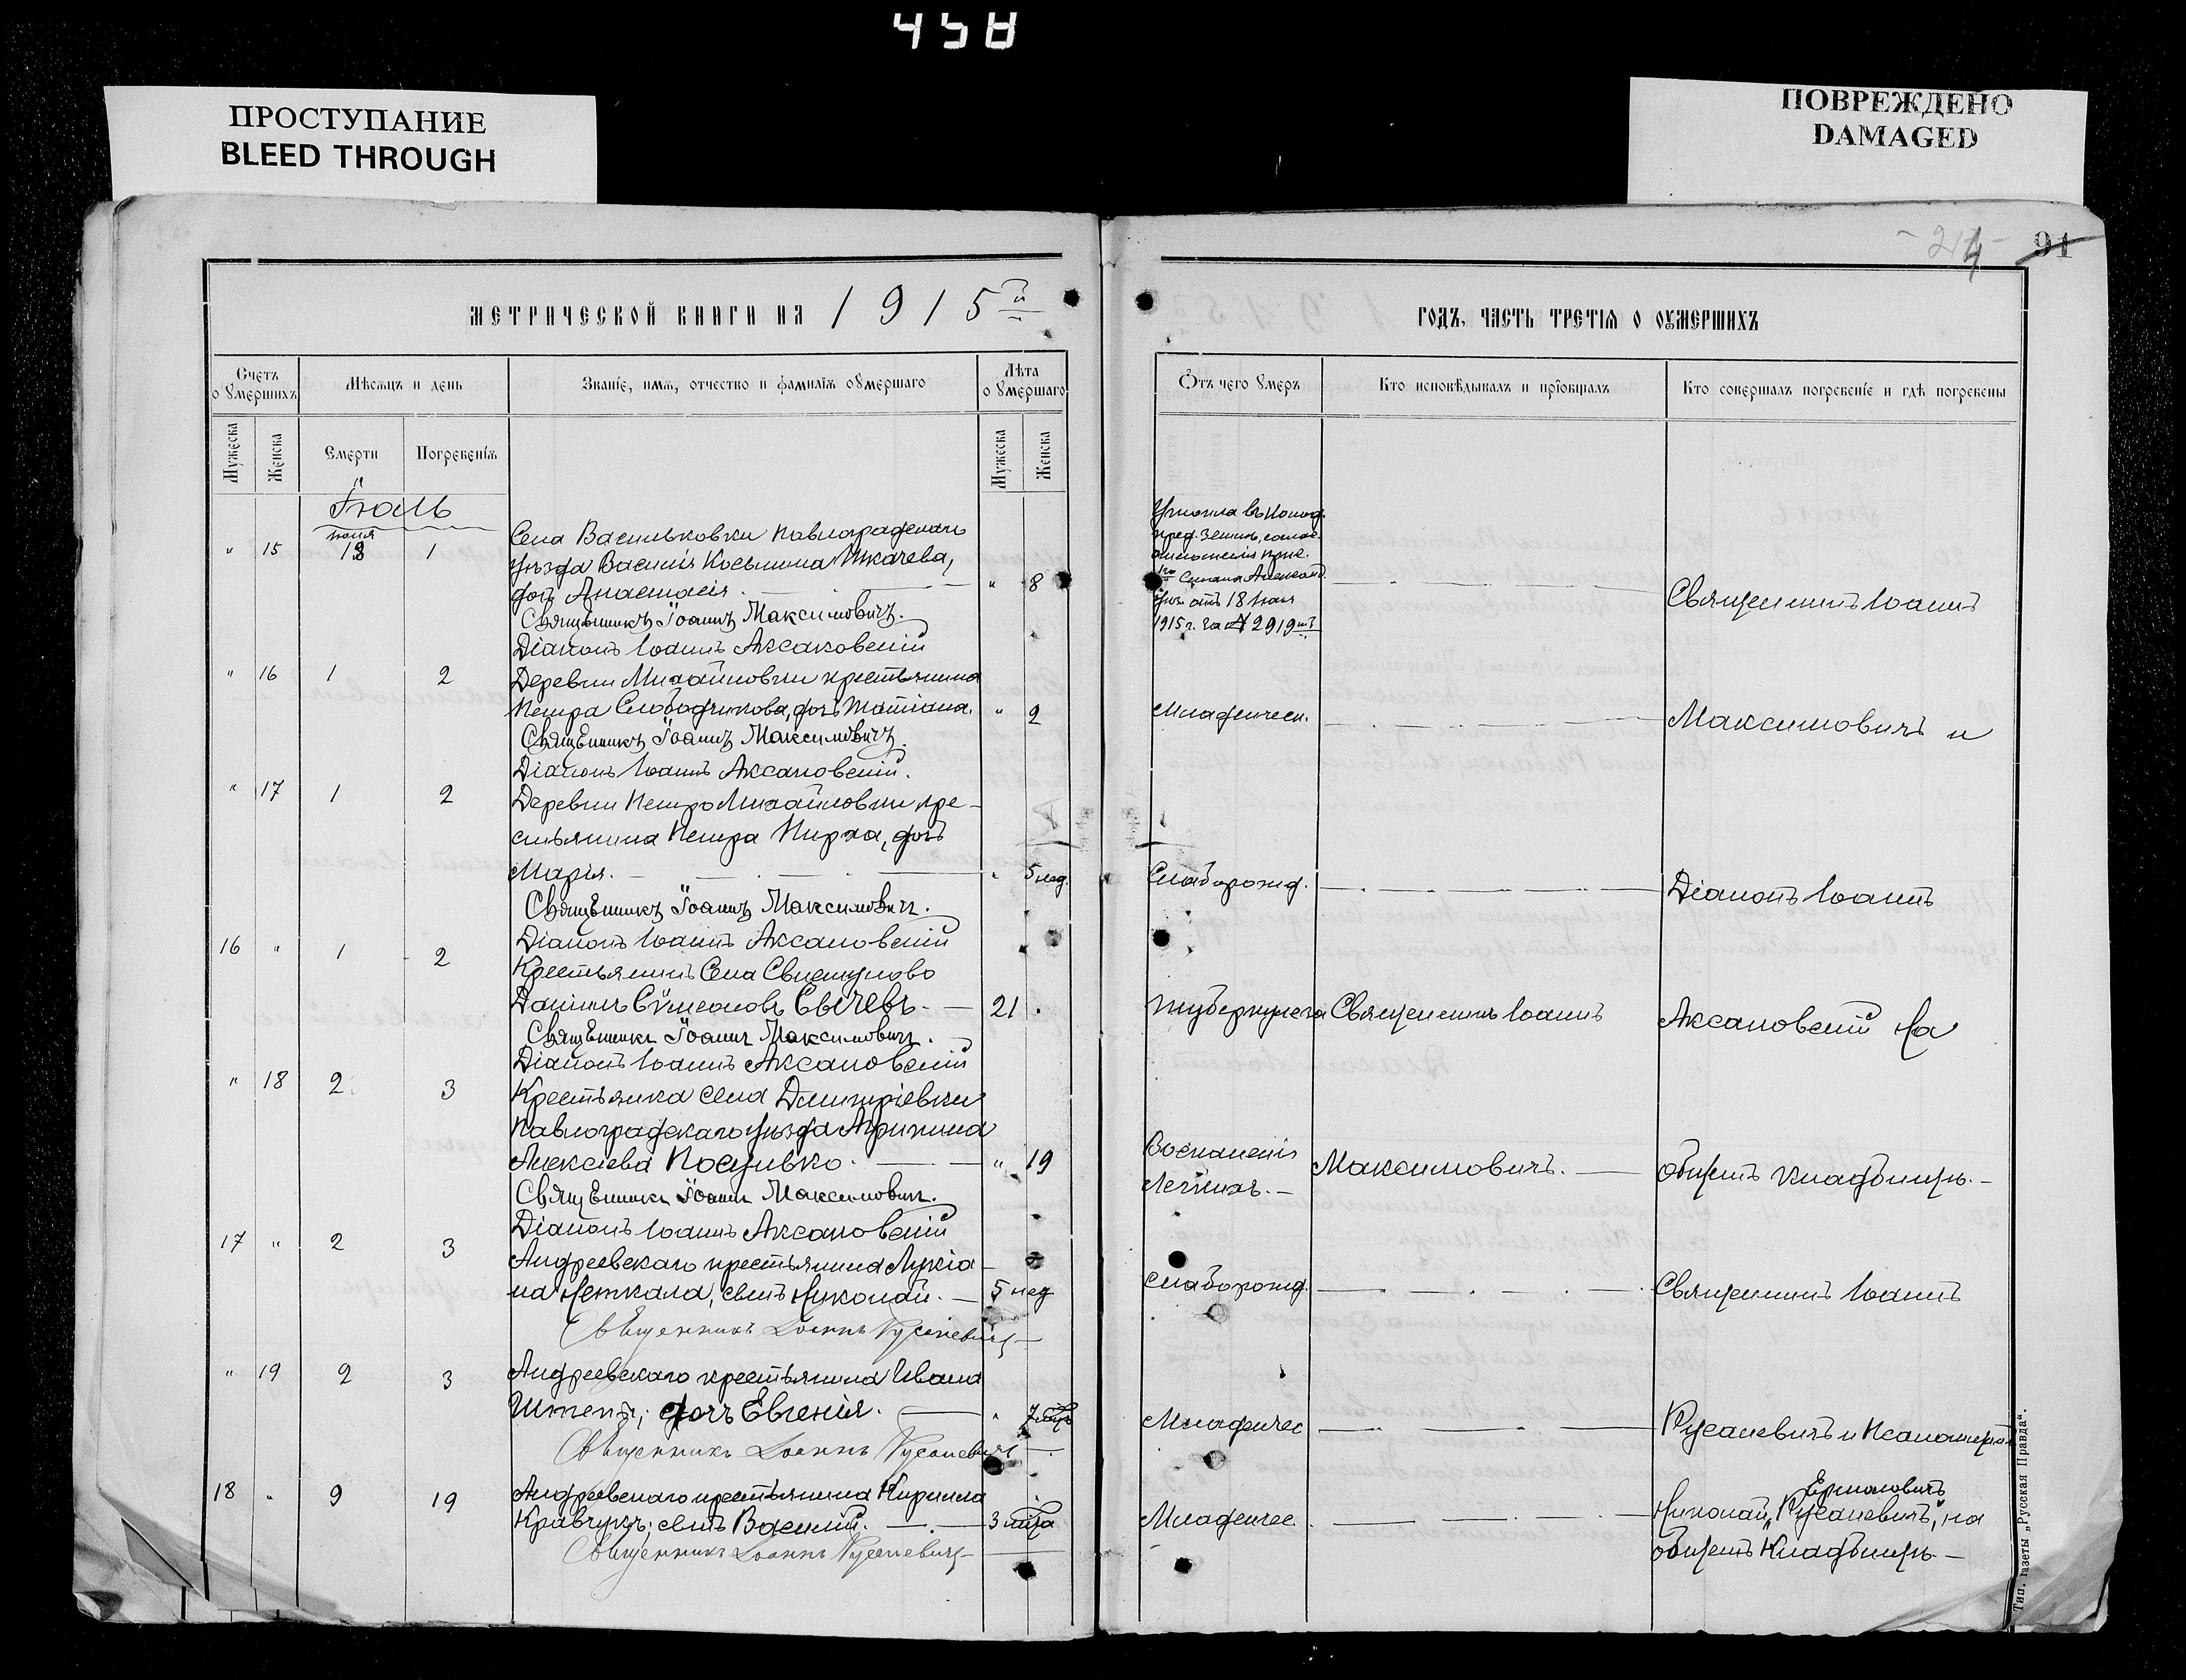 458
ПРОСТУПАНИЕ
BLEED THROUGH
ПОВРЕЖДЕНО
DAMAGED
МЕТРИЧЕСКОЙ КНИГИ НА 1915й
Счетъ оумершихъ
Мѣсяцъ и день
Званіе, имя, отчество и фамилія оумершаго
Лѣта оумершаго
Мужеска
Женска
Смерти
Погребенія
Мужеска
Женска
Іюль
іюня
" 15 18 1
Села Васильковки Павлоградскаго
уѣзда Василія Косьмина Ткачева,
дочь Анастасія. " 8
Священникъ Іоаннъ Максимовичъ.
Діаконъ Іоаннъ Аксаковскій
" 16 1 2
Деревни Михайловки крестьянина
Петра Слободчикова, дочь Татіана. " 2
Священникъ Іоаннъ Максимовичъ.
Діаконъ Іоаннъ Аксаковскій.
" 17 1 2
Деревни Петромихайловки кре-
стьянина Петра Пирха, дочь
Марія. " 5 нед.
Священникъ Іоаннъ Максимовичъ.
Діаконъ Іоаннъ Аксаковскій
16 " 1 2
Крестьянинъ Села Свистуново
Даніилъ Сѵмеоновъ Сычевъ. 21
Священникъ Іоаннъ Максимовичъ.
Діаконъ Іоаннъ Аксаковскій
" 18 2 3
Крестьянка села Дмитріевки
Павлоградскаго уѣзда Агрипина
Алексіева Посунько. " 19
Священникъ Іоаннъ Максимовичъ.
Діаконъ Іоаннъ Аксаковскій
17 " 2 3
Андреевскаго крестьянина Лукіа-
на Неткала, сынъ Николай. 5 нед
Священникъ Іоаннъ Русаневичъ
" 19 2 3
Андреевскаго крестьянина Ивана
дочь Евгенія. " 7
Священникъ Іоаннъ Русаневичъ
18 " 9 19
Андреевскаго крестьянина Кирилла
Кравчукъ; сынъ Василій. 3 мѣс
Священникъ Іоаннъ Русаневичъ
- 214 - 91
ГОДЪ, ЧАСТЬ ТРЕТІЯ О ОУМЕРШИХЪ
Отъ чего умеръ
Кто исповѣдывалъ и пріобщалъ
Кто совершалъ погребеніе и гдѣ погребены
Утонула въ колод.
отношенія
Александ.
уѣз. отъ 18 іюня
1915 г. за № 2919мъ
Священникъ Іоаннъ
Младенческ.
Максимовичъ и
Слаборожд.
Діаконъ Іоаннъ
Туберкулеза
Священникъ Іоаннъ
Аксаковскій На
Воспаленія
Легкихъ.
Максимовичъ.
общемъ кладбищѣ.
Слаборожд.
Священникъ Іоаннъ
Младенчес
Русаневичъ и Псаломщикъ
Младенчес.
Ермоловичъ
Николай "Русаневичъ", на
общемъ Кладбищѣ.
Тип. газеты „Русская Правда“.